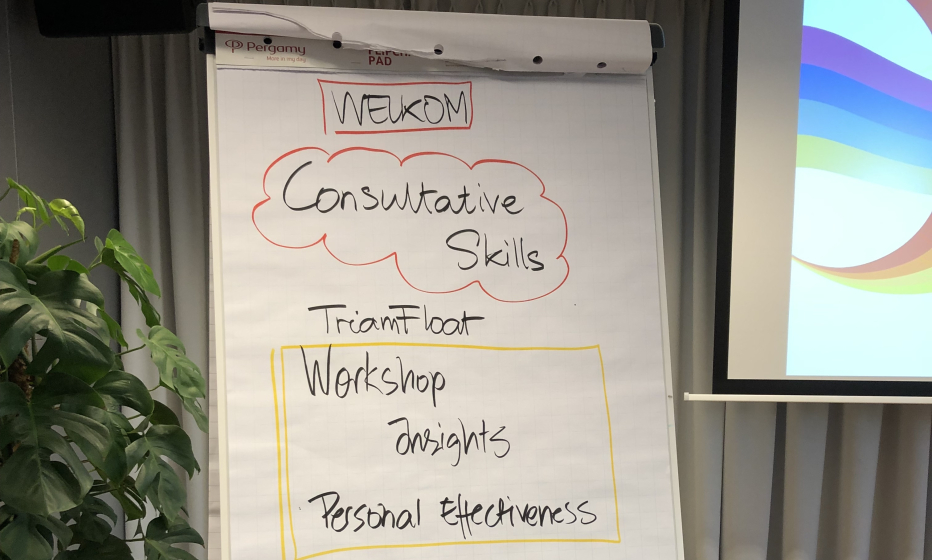 Pergamy
More in my day
PAD
WELKOM
Consultative
Skills
TriamFloat
Workshop
Insights
Personal Effectiveness